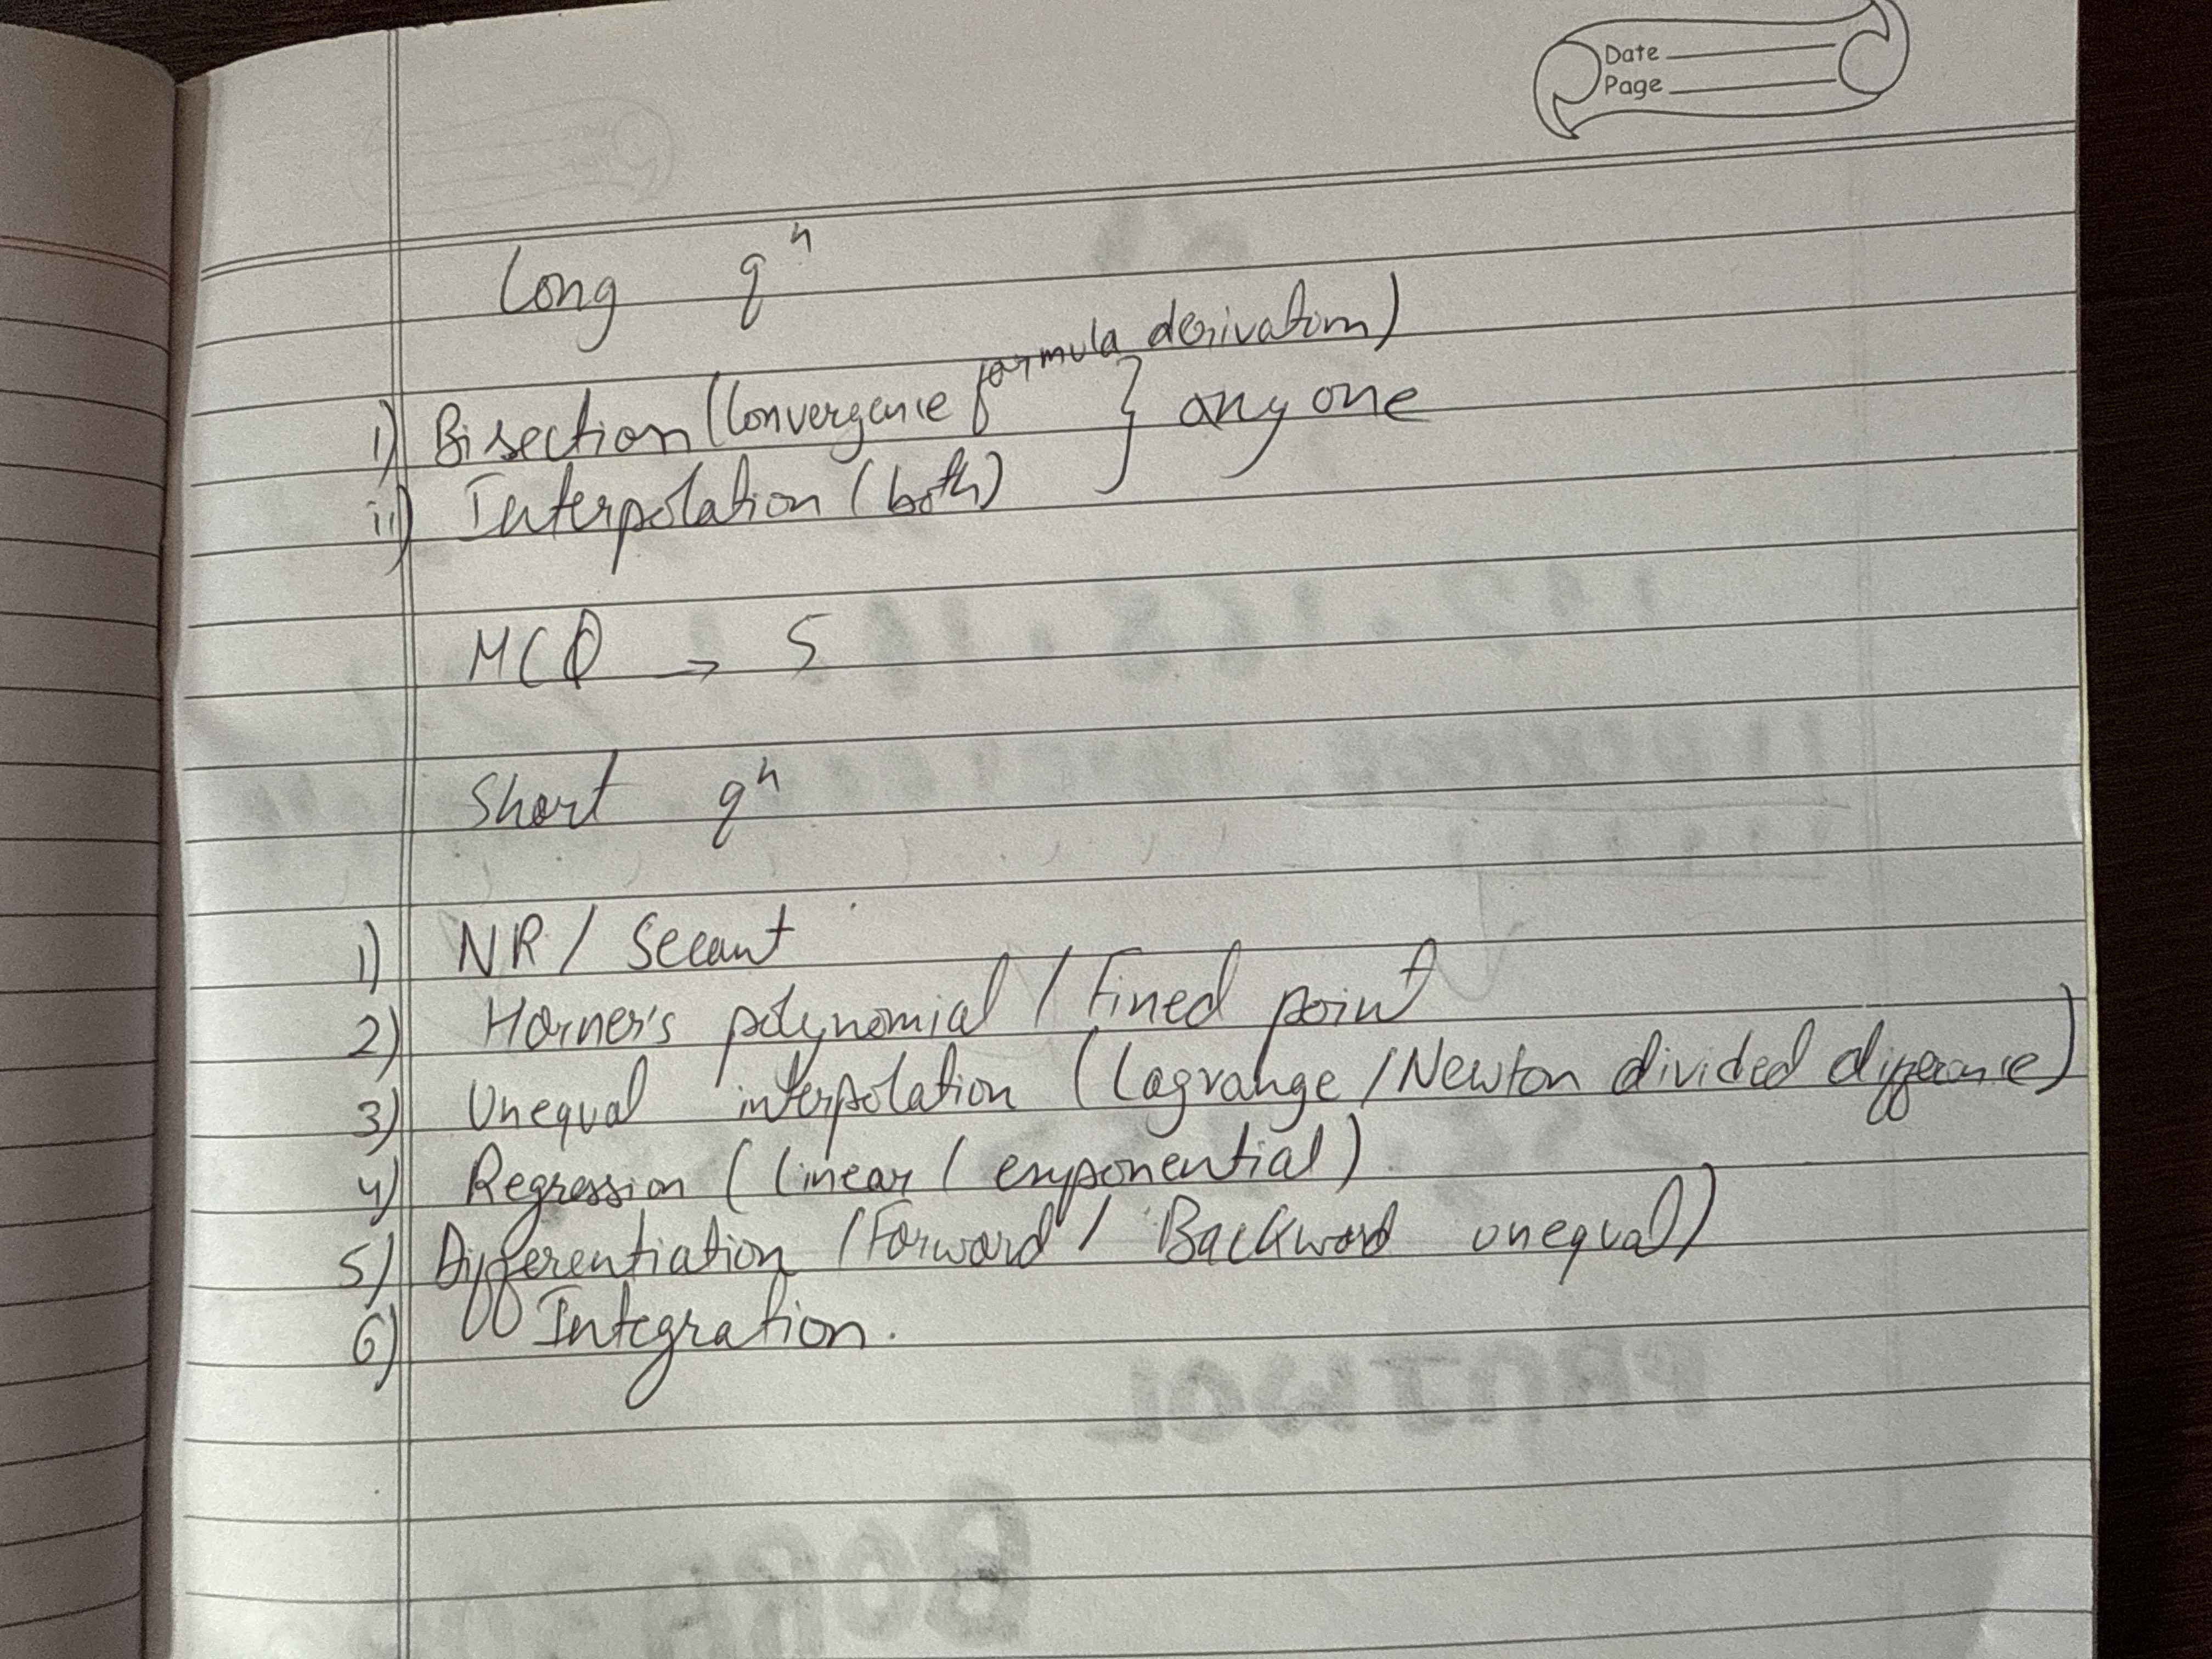 Date
Page
Long qn
i) Bisection (Convergence formula derivation) } any one
ii) Interpolation (both)
MCQ → 5
Short qn
1) NR / Secant
2) Horner's polynomial / Fixed point
3) Unequal interpolation (Lagrange / Newton divided difference)
4) Regression (linear / exponential)
5) Differentiation (Forward / Backward unequal)
6) Integration.